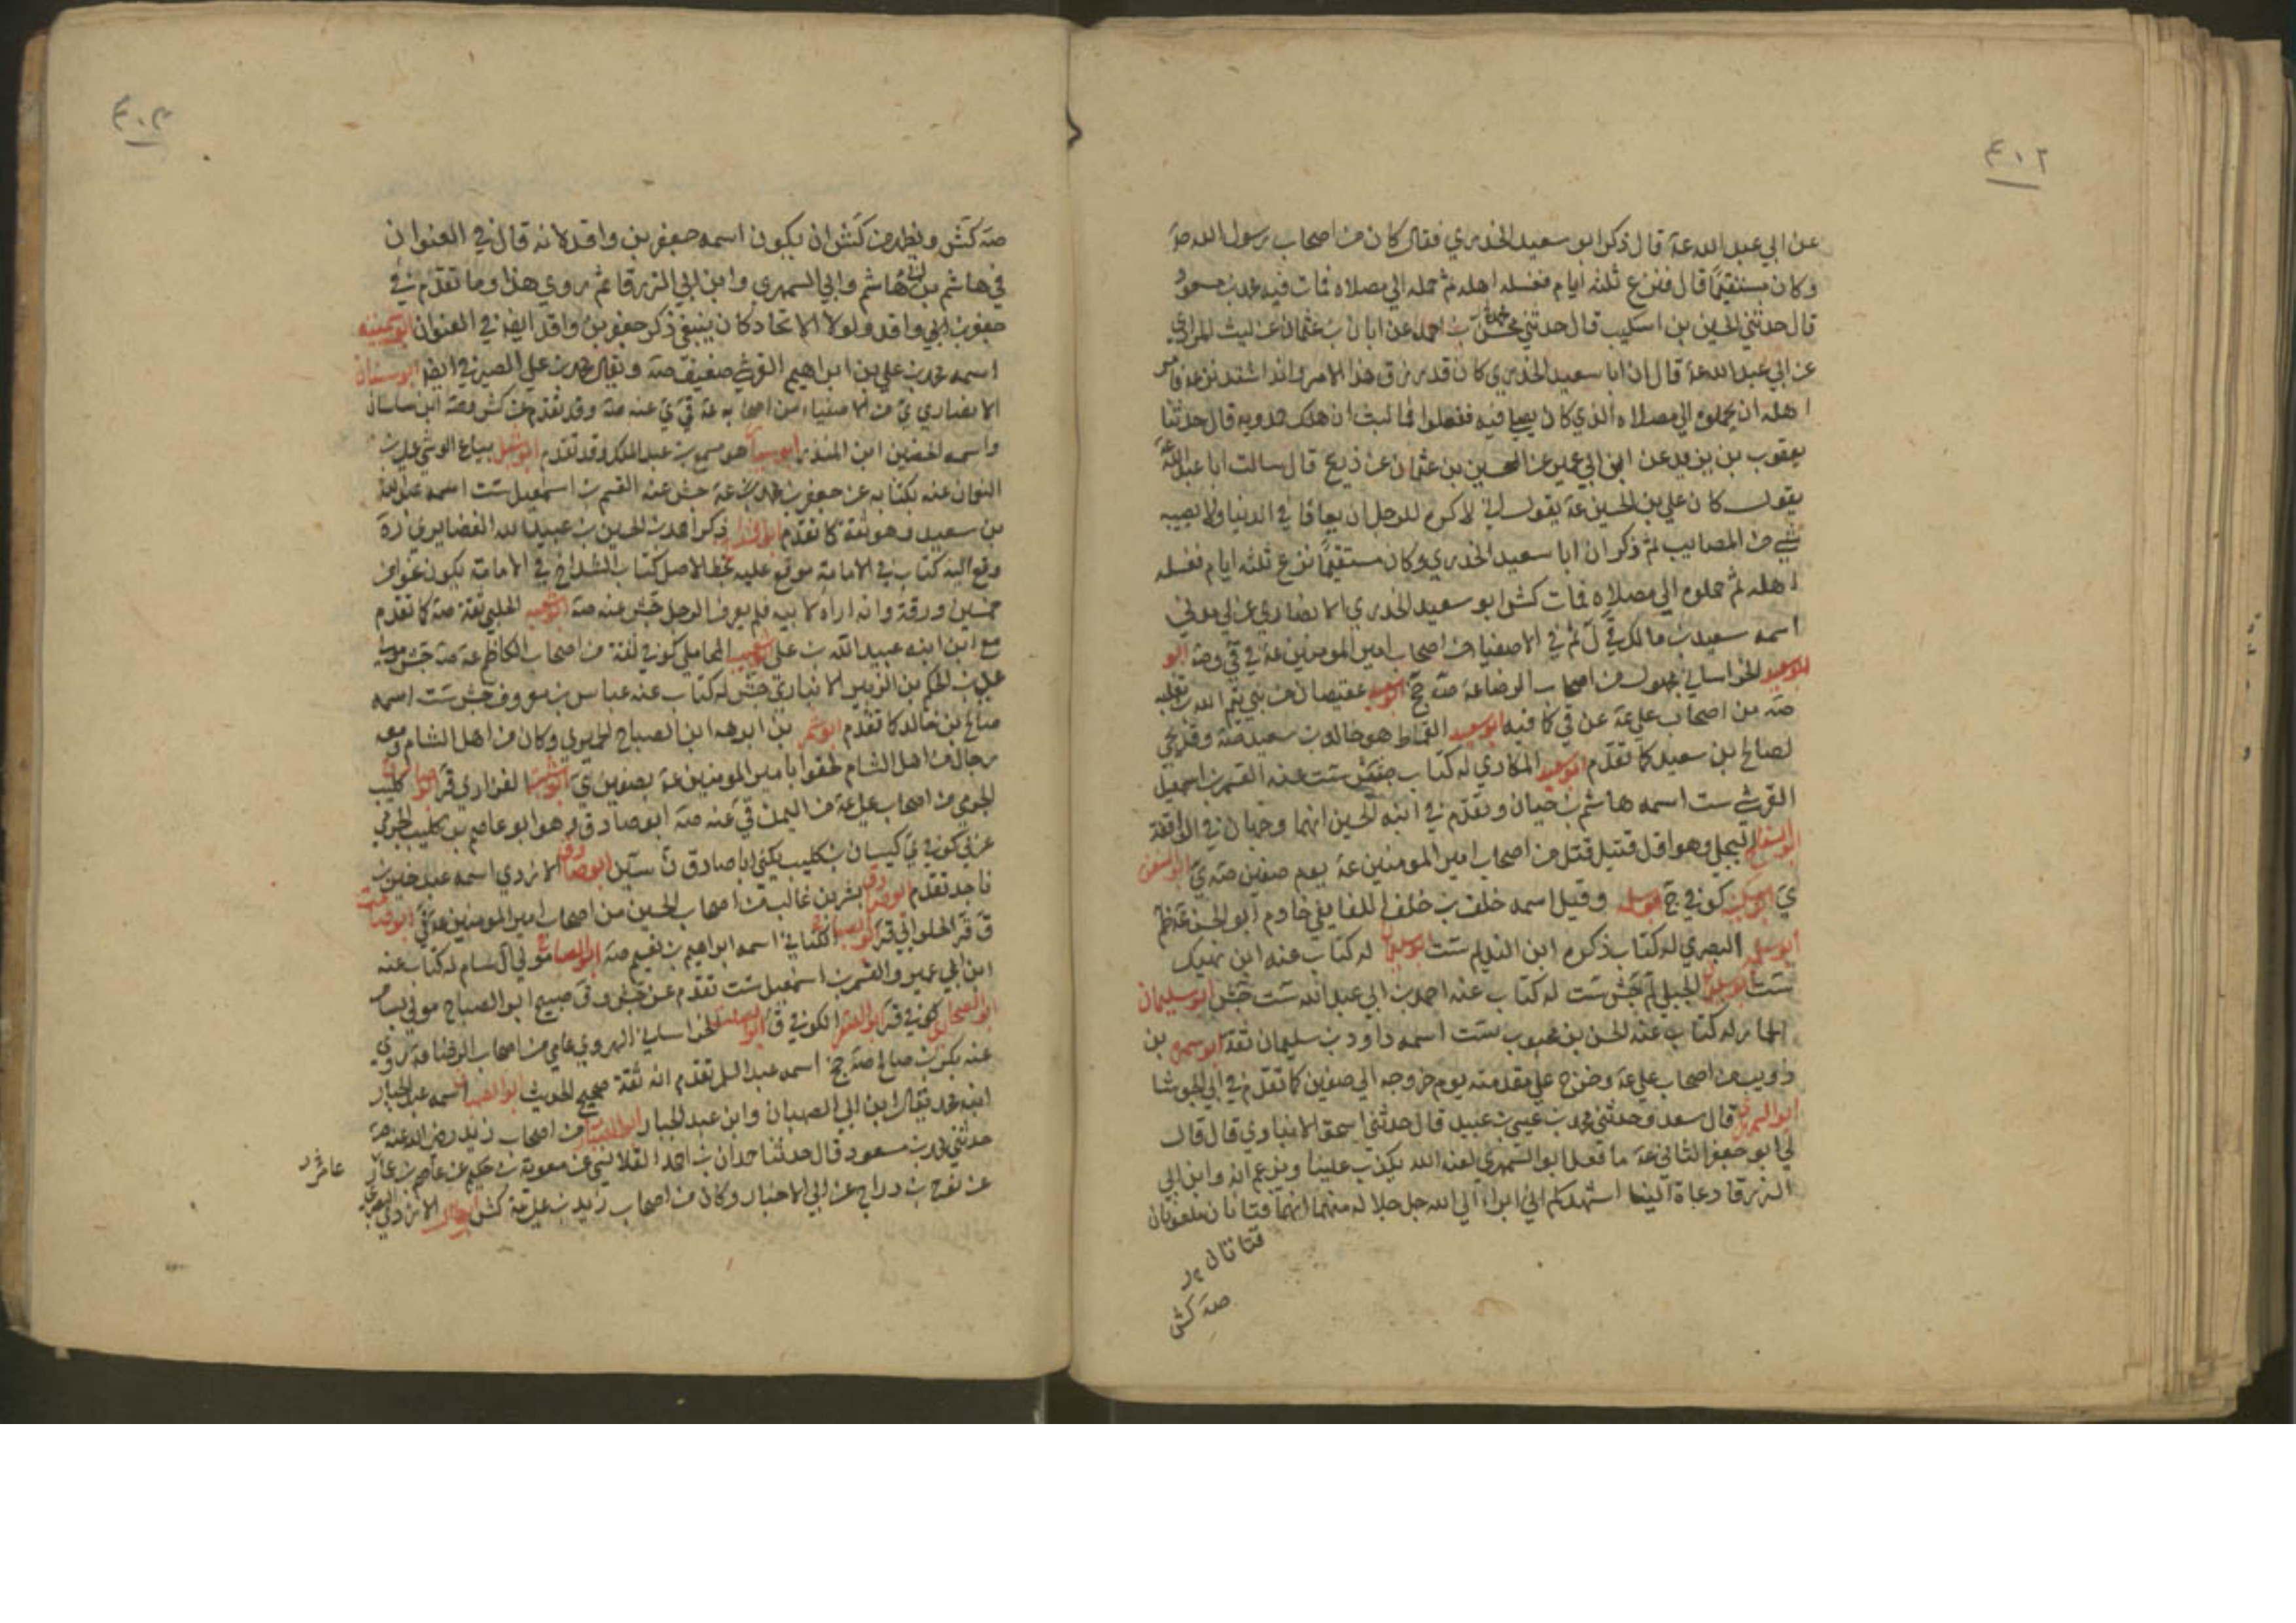 ٤٠٢
عن ابي عبد الله عة قال ذكر ابو سعيد الخدري فقال كان من اصحاب رسول الله صة
وكان مستقيماً قال فنزع ثلثة ايام فغسله اهله ثم حمله الي مصلاه فمات فيه محمد بن مسعود
قال حدثني الحسين بن اسكيب قال حدثني محسن بن احمد عن ابان بن عثمان عن ليث المرادي
عن ابي عبد الله عة قال ان ابا سعيد الخدري كان قد رزق هذا الامر وانه اشتد نزعه فامر
اهله ان يحملوه الي مصلاه الذي كان يصلي فيه ففعلوا فما لبث ان هلك حمدويه قال حدثنا
يعقوب بن يزيد عن ابن ابي عمير عن الحسين بن عثمان عن ذريح قال سالت ابا عبد الله عة
يقول كان علي بن الحسين عة يقول اني لاكره للرجل ان يعافا في الدنيا ولا يصيبه
شي من المصايب ثم ذكر ان ابا سعيد الخدري وكان مستقيماً نزع ثلثة ايام فغسله
اهله ثم حملوه الي مصلاه فمات كش ابو سعيد الخدري الانصاري عربي مدني
اسمه سعد بن مالك في ل ثم في الاصفياء من اصحاب امير المومنين عة في قي وصة ابو
ابو سعيد الخراساني مجهول من اصحاب الرضا عة صة جخ ابو سعيد عقيصان من بني تيم الله بن ثعلبه
صة من اصحاب علي عة عن قي كا فيه ابو سعيد القماط هو خالد بن سعيد صة وقد يجي
لصالح بن سعيد كما تقدم ابو سعيد المكاري له كتاب ست عنه القسم بن اسمعيل
القرشي ست اسمه هاشم بن حيان وتقدم في ابنه الحسين انهما وجهان في الواقفة
البجلي وهو اول قتيل قتل من اصحاب امير المومنين عة يوم صفين صة ي
ي كوفي جخ وقيل اسمه خلف بن خلف خادم ابو الحسن عة ظم
ابو سلمه البصري له كتاب ذكره ابن النديم ست له كتاب عنه ابن نهيك
ست الجبلي لم جش ست له كتاب عنه احمد بن ابي عبد الله ست جش ابو سليمان
الحمار له كتاب عنه الحسن بن محبوب ست اسمه داود بن سليمان ثقة ابو سمره بن
ذويب من اصحاب علي عة وخرج علي مقدمته يوم خروجه الي صفين كما تقدم في ابي الجوشا
ابو السمهري قال سعد وحدثني محمد بن عيسي بن عبيد قال حدثني اسحق الانباري قال قال
لي ابو جعفر الثاني عة ما فعل ابو السمهري لعنه الله يكذب علينا ويزعم انه وابن ابي
الزرقا دعاة الينا اشهدكم اني ابراء الي الله جل جلاله منهما انهما فتانان ملعونان
فتانان
صة كش
٤٠٣
صة كش ويظهر من كش ان يكون اسمه جعفر بن واقد لانه قال في العنوان
في هاشم بن ابي هاشم وابي السمهري وابن ابي الزرقا ثم روي هذا وما تقدم في
جعفر بن ابي واقد ولولا الاتحاد كان ينبغي ذكر جعفر بن واقد ايضاً في العنوان ابو سمينه
اسمه محمد بن علي بن ابراهيم القرشي ضعيف صة ويقال محمد بن علي الصيرفي ايضاً ابو سنان
الانصاري ي من الاصفياء من اصحابه عة قي ي عنه صة وقد تقدم عن كش وصة ابن ساسان
واسمه الحضين ابن المنذر ابو سيار هو مسمع بن عبد الملك وقد تقدم ابو شبل بياع الوشي علي بن
النعمان عنه بكتابه عن جعفر بن محمد عة جش عنه القسم بن اسمعيل ست اسمه عبد الله
بن سعيد وهو ثقة كما تقدم ذكر احمد بن الحسين بن عبيد الله الغضايري ره
وقع اليه كتاب في الامامة موقع عليه بخط الاصل كتاب الشداخ في الامامة يكون نحو من
خمسين ورقة وانه اراه لابيه فلم يعرف الرجل جش عنه صة ابو شعبه الحلبي ثقة صة كما تقدم
مع ابن ابنه عبيد الله بن علي ابو شعيب المحاملي كوفي ثقة من اصحاب الكاظم عة صة جش
علي بن الحكم بن الزبير الانباري جش له كتاب عنه عباس بن معروف جش ست اسمه
صالح بن خالد كما تقدم ابو شمر بن ابرهه ابن الصباح الحميري وكان من اهل الشام ومعه
رجال من اهل الشام لحقوا بامير المومنين عة بصفين ي الفزاري قر كليب
الجرمي من اصحاب علي عة من اليمن قي عنه صة ابو صادق وهو ابو عاصم بن كليب الجرمي
عربي كوفي ي كيسان بن كليب يكني ابا صادق ن سين ابو صادق الازدي اسمه عبد خير بن
ناجد تقدم ابو صادق بشر بن غالب من اصحاب الحسين من اصحاب امير المومنين عة قي
ق قر الحلواني قر الكناني اسمه ابراهيم بن نعيم صة مولي آل سام له كتاب عنه
ابن ابي عمير والقسم بن اسمعيل ست تقدم عن جش وق صبيح ابو الصباح مولي بسام
كوفي قر الكوفي ق ابو الصلت الخراساني الهروي عامي من اصحاب الرضا عة روي
عنه بكر بن صالح صة جخ اسمه عبد السلم تقدم انه ثقة صحيح الحديث اسمه عبد الجبار
ابنه محمد يقال ابن ابي الصهبان وابن عبد الجبار من اصحاب زيد رضي الله عنه صة
حدثني محمد بن مسعود قال حدثنا حمدان بن احمد القلانسي عن معوية بن حكيم عن عاصم بن عمار
عن نوح بن دراج عن ابي الاخبار وكان من اصحاب زيد بن علي عة كش الازدي البصري
عامر